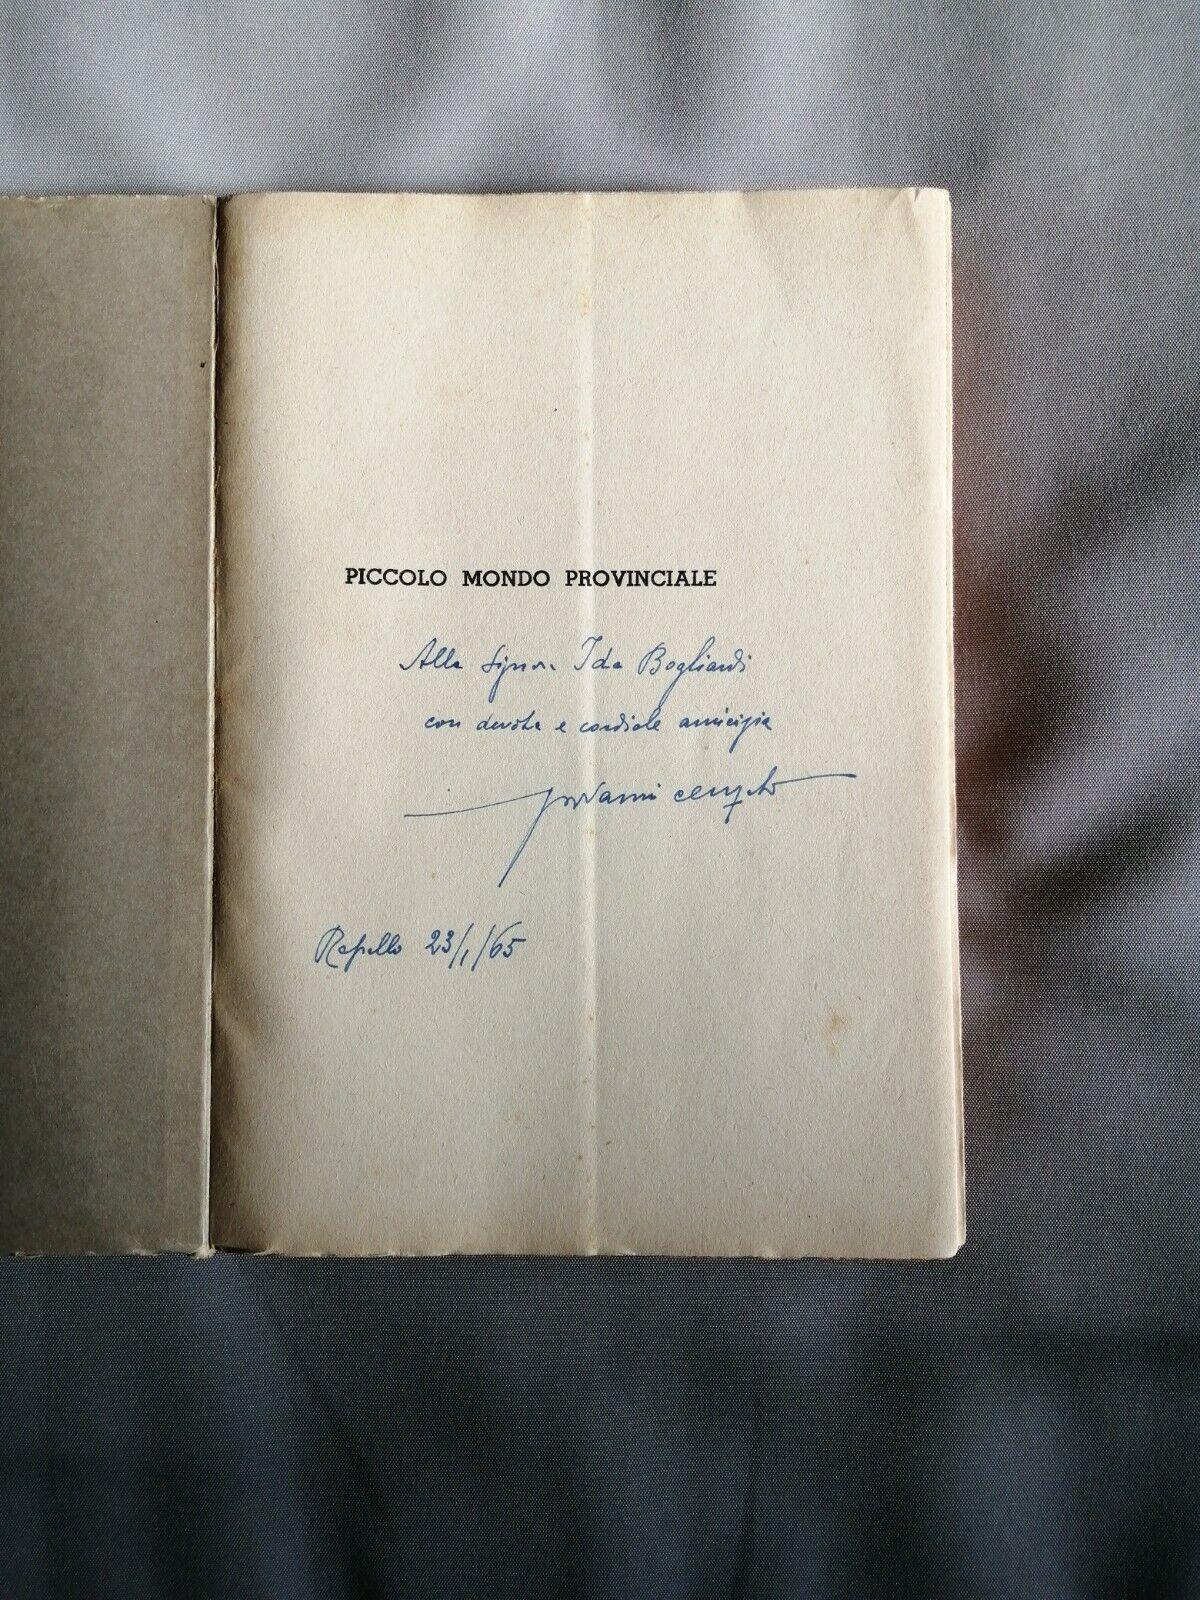 PICCOLO MONDO PROVINCIALE
Alla Signora Ida Bogliardi
con devota e cordiale amicizia
Giovanni Cenzato
Rapallo 23/1/65